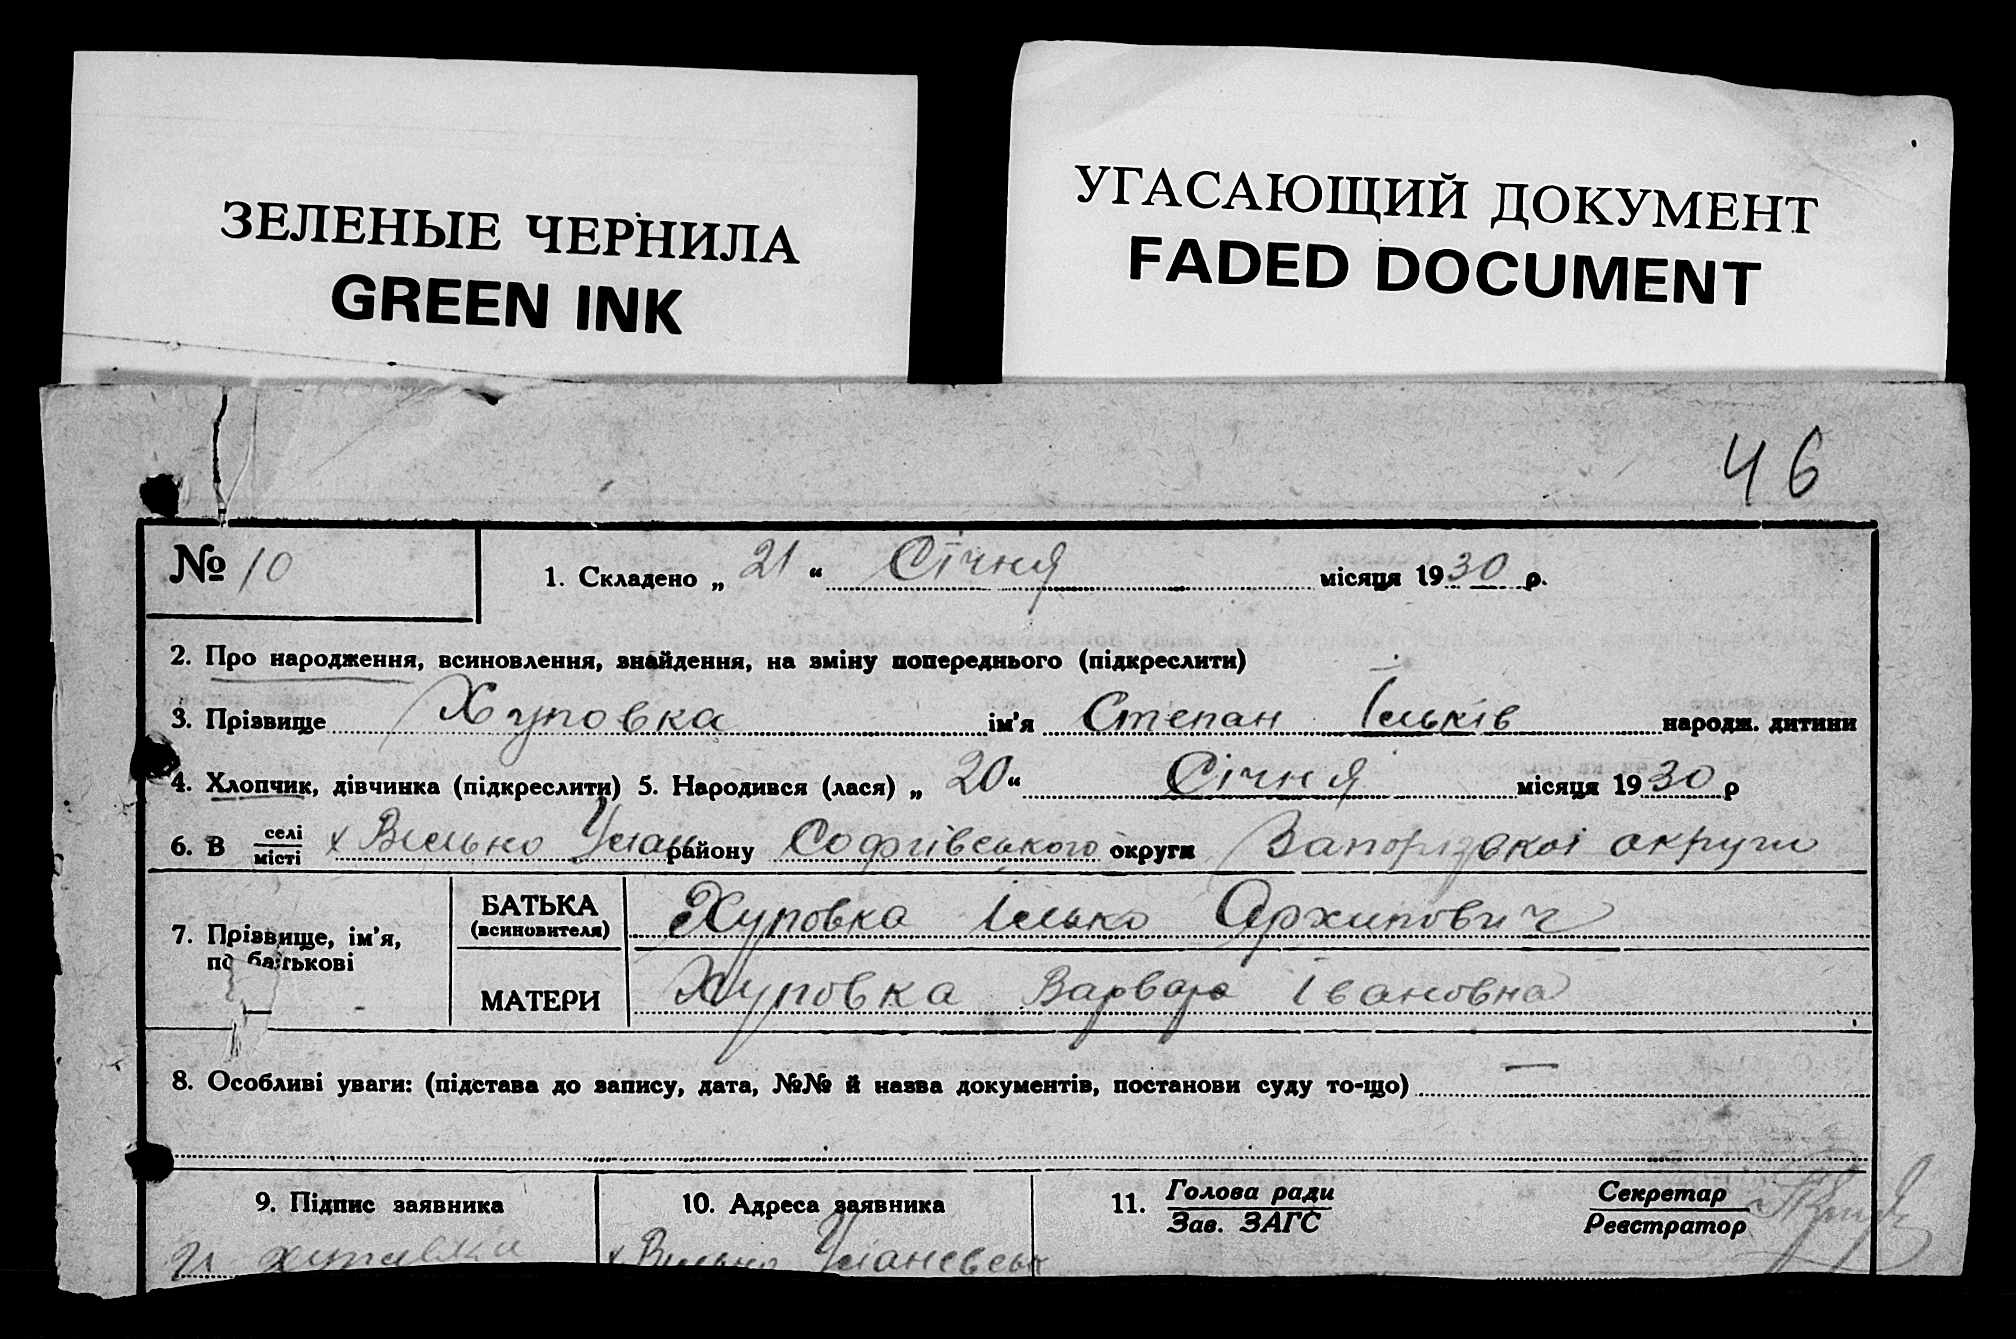 ЗЕЛЕНЫЕ ЧЕРНИЛА
GREEN INK
УГАСАЮЩИЙ ДОКУМЕНТ
FADED DOCUMENT
46
№ 10
1. Складено „ 21 “ Січня місяця 1930 р.
2. Про народження, всиновлення, знайдення, на зміну попереднього (підкреслити)
3. Прізвище Хуповка ім'я Степан Ільків народж. дитини
4. Хлопчик, дівчинка (підкреслити) 5. Народився (лася) „ 20 “ Січня місяця 1930 р
6. В селі місті х Вільно Улан району Софіївського округи Запорізвкої округи
7. Прізвище, ім'я, по батькові
БАТЬКА (всиновителя) Хуповка Ілько Архипович
МАТЕРИ Хуповка Варвара Івановна
8. Особливі уваги: (підстава до запису, дата, №№ й назва документів, постанови суду то-що) —
9. Підпис заявника
10. Адреса заявника
11. Голова ради Зав. ЗАГС
Секретар Реєстратор
Хуповка
х Вільно Уланевськ